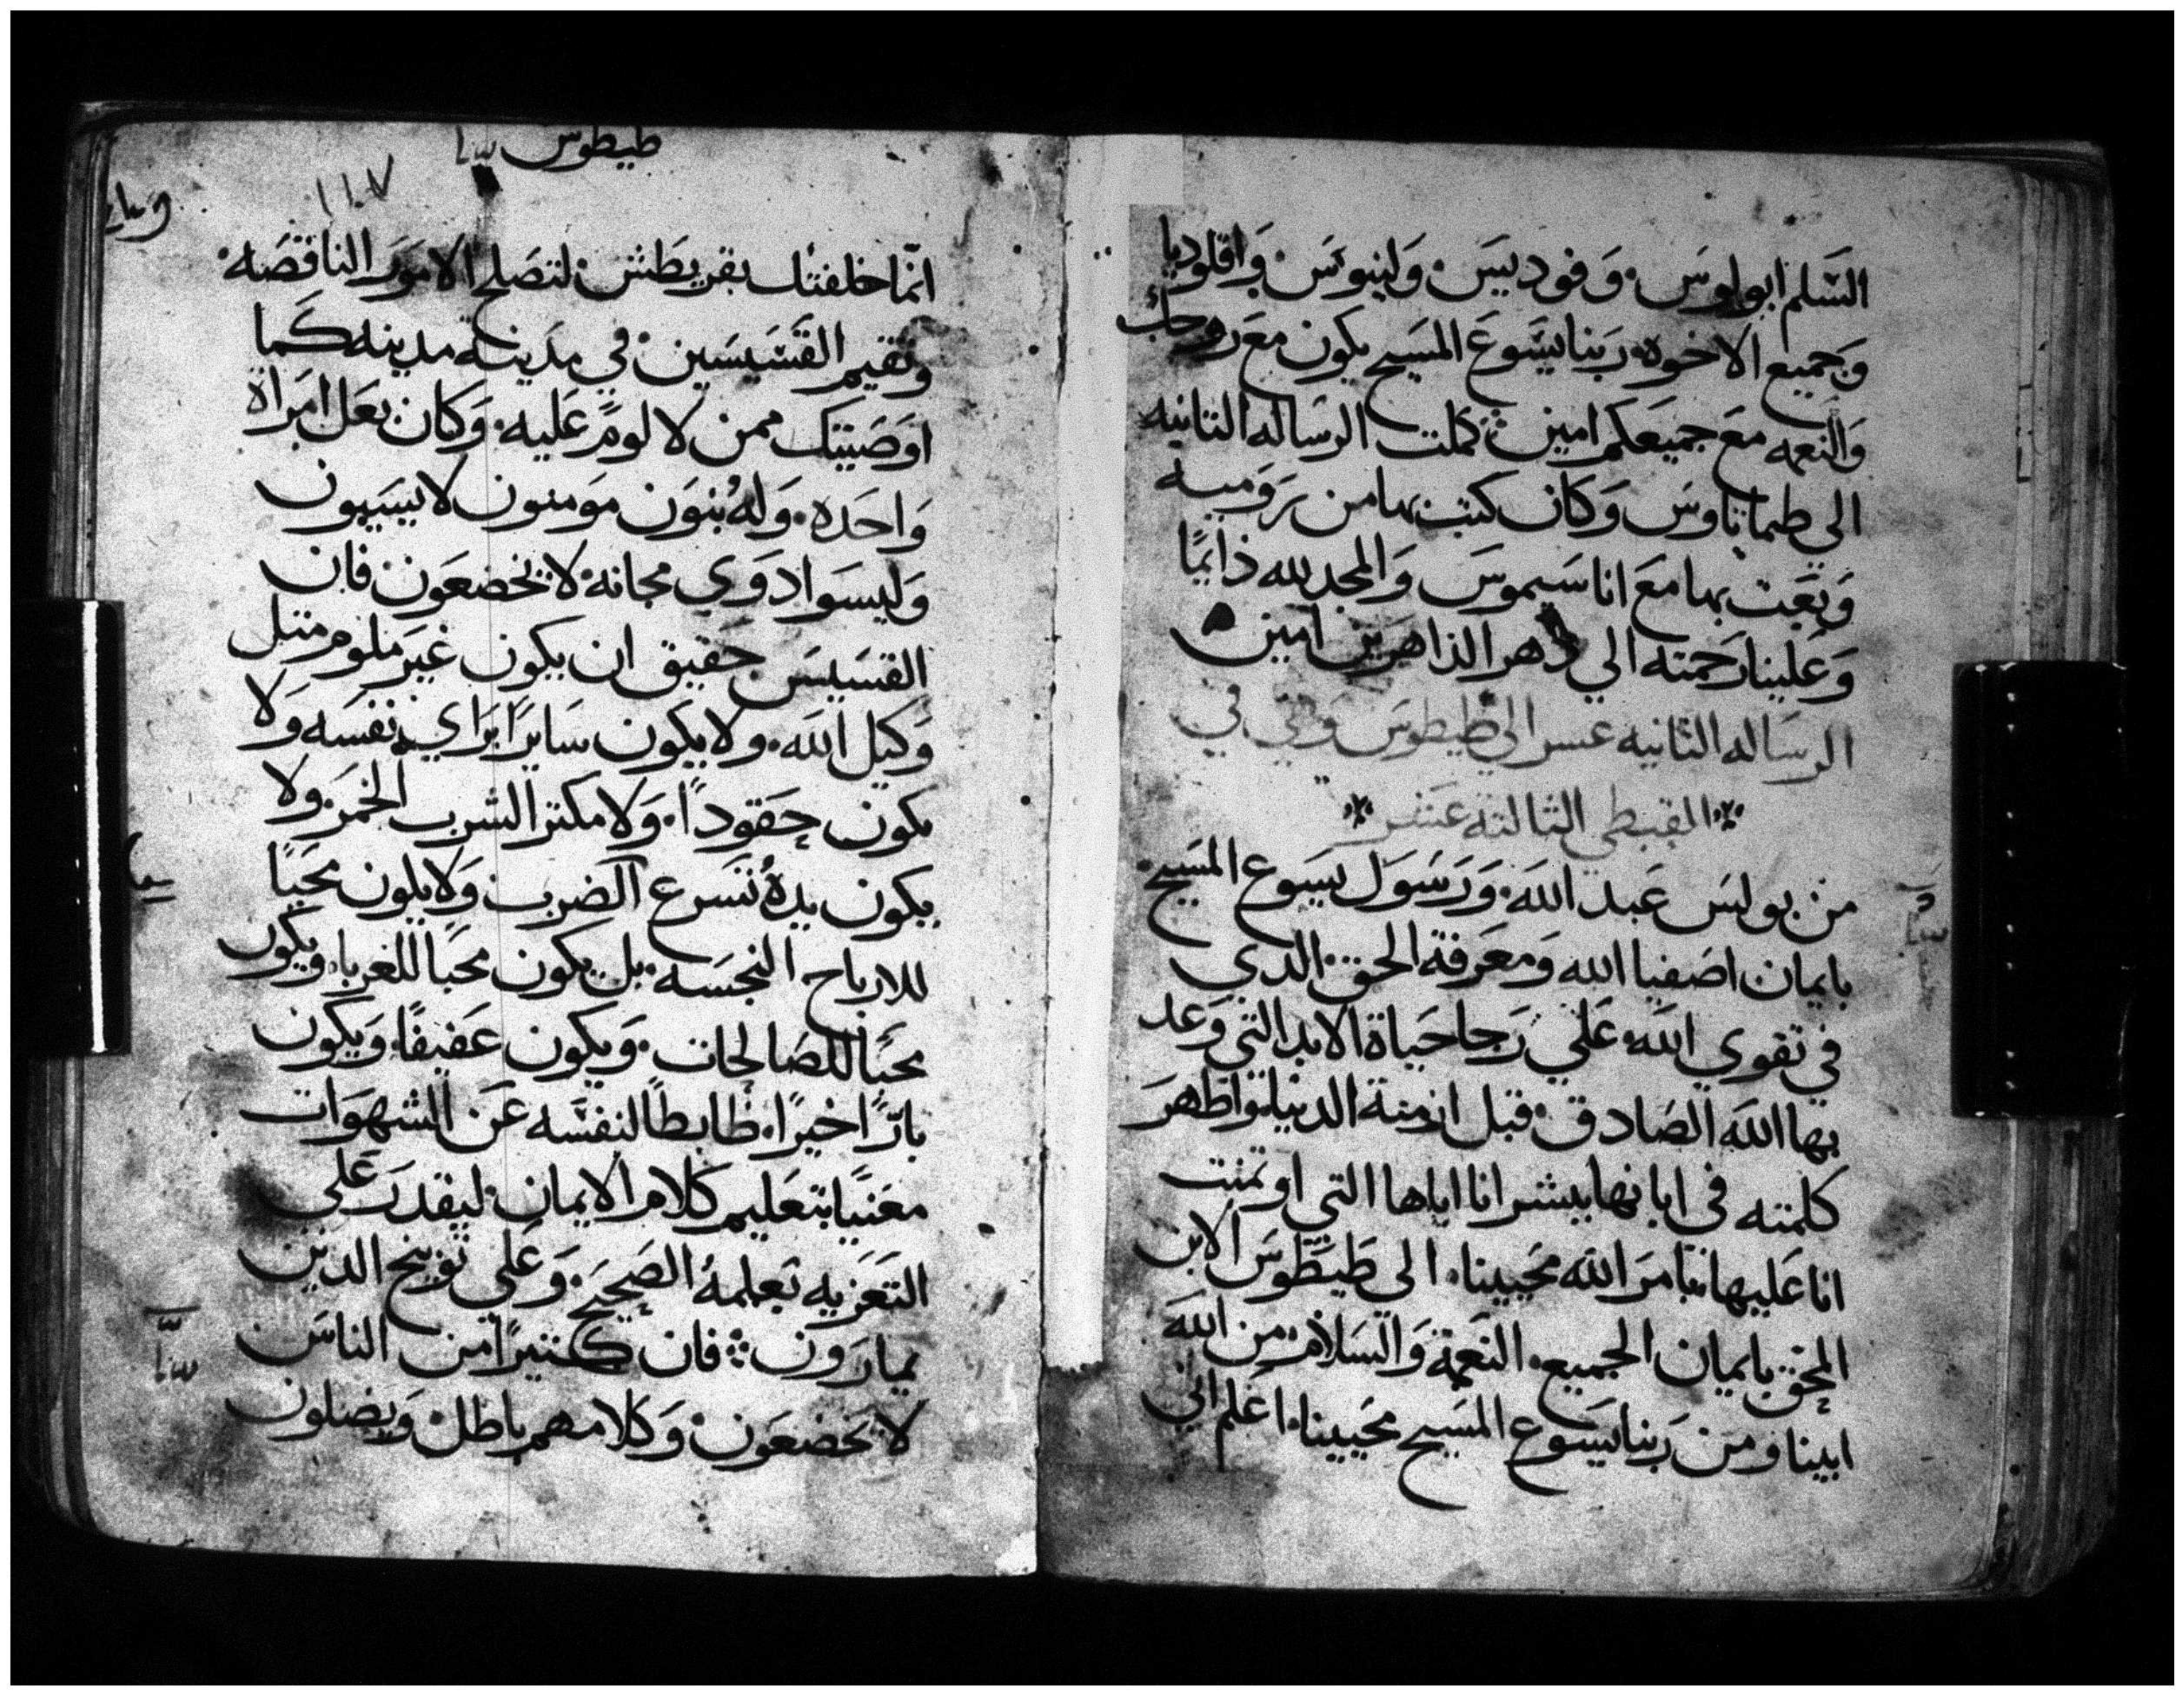 السَلم ابولوس وَفوديس وَلينوس وَاقلوديا
وَجميع الاخوه رَبنا يسَوعَ المسَيح يكون معَ روحك
وَالنعمه مَع جميعكم امين كملت الرسَاله الثانيه
الي طيماتاوسَ وَكان كتب بها من رَوميه
وَبعَت بها مَع اناسَيموسَ وَالمجد لله دَايمًا
وَعَلينا رَحمته الي دَهر الداهرين امين
الرسَاله الثانيه عسر الي طيطوسَ وَهي في
القبطي الثالثة عشر
من بولسَ عَبد الله وَرَسَول يسَوع المسَيح
بايمان اصَفيا الله وَمعَرفة الحق الدي
في تقوي الله عَلي رَجا حَياة الابد التي وَعد
بها الله الصَادق قبل ازمنة الدنيا واظهرَ
كلمته في ابانها ببشرانا اياها التي اوتمنت
انا عَليها بامرَ الله محَيينا الى طَيطوسَ الابن
المحق بايمان الجميع النعَمة وَالسَلام من الله
ابينا ومن رَبنا يسَوع المسَيح محَيينا اعَلم اني
طيطوس
١١٠٧
انمَا خلفتك بقريطش لتصَلح الامورَ الناقصَه
وتقيم القسَيسَين في مدَينه مدينه كَما
اوَصَيتك ممن لا لومً عَليه وَكان بعَل امرَاة
وَاحدَه وَله بنوَن مومنون لا يسَبون
وَليسوَا ادوَي مجانة لا يخضعَون فان
القسَيسَ حَقيق ان يكون غيرَ ملوم متل
وَكيل الله ولا يكون سَايرًا برَاي نفسَه وَلا
يكون حَقودًا وَلا مكترا لشرب الخمرَ ولا
يكون يدهُ تسَرع الضرب وَلا يلون محَبًا
للارباح النجسَه بل يكون محبَا للغربا ويكون
محَبًا للصَالحات وَيكون عَفيفًا وَيكون
بارًا خيرًا ظابطًا لنفسَه عَن الشهوَات
معَنيًا بتعَليم كلام الايمان ليقدرَ عَلي
التعَزيه بتعَلمهُ الصَحيَح وَعَلي توبيخ الدين
يمارَون فان كتيرًا من الناسَ
لا يخضعَون وَكلامهم باطل وَيضلون